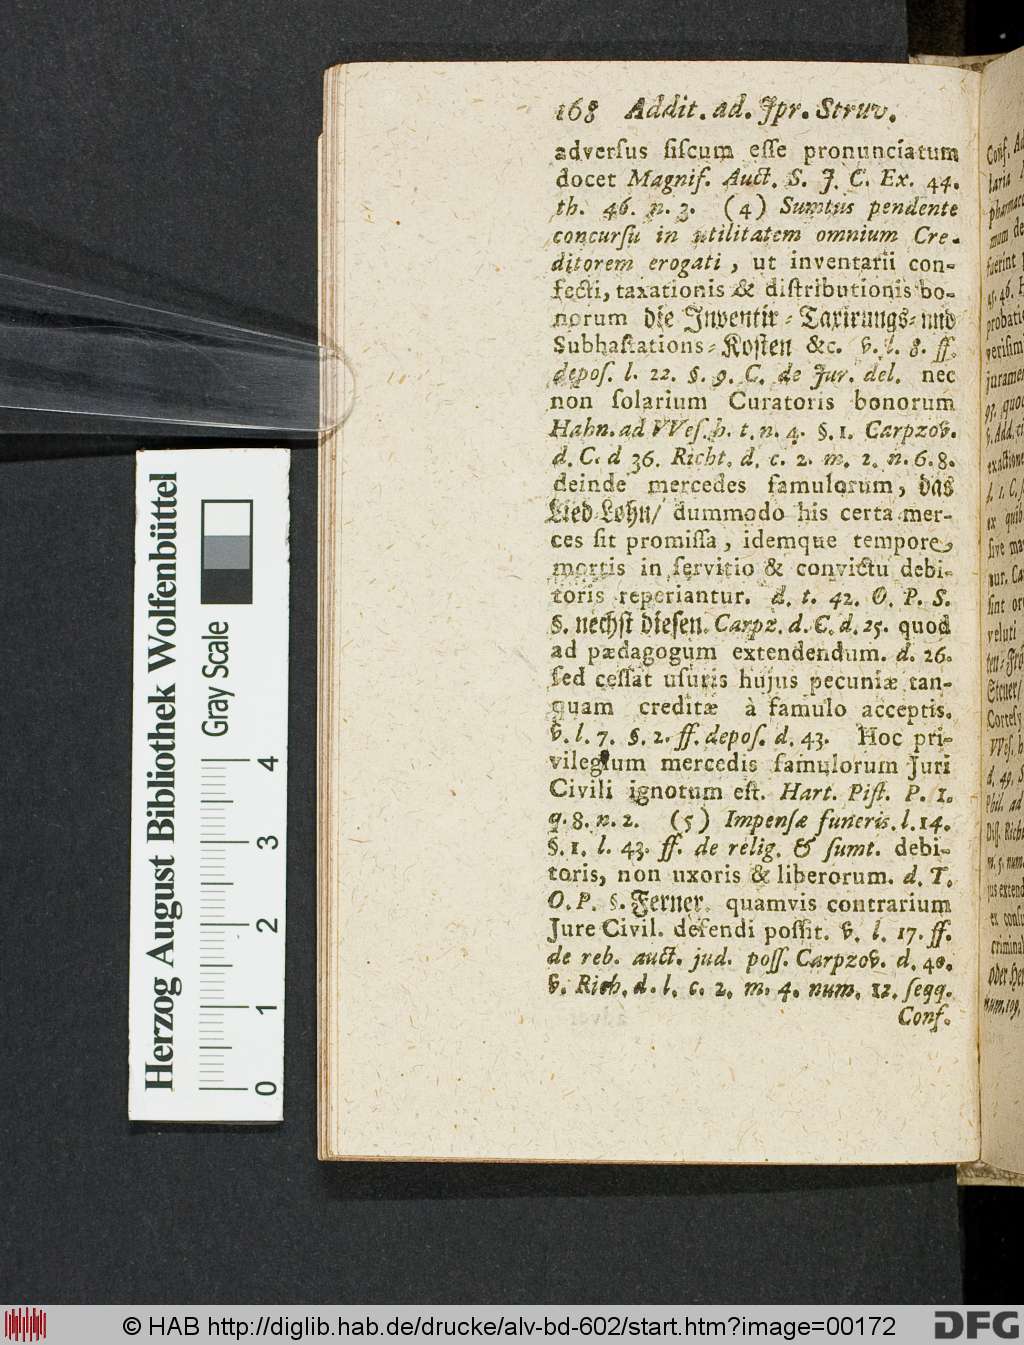 168 Addit. ad. Jpr. Struv.
adverſus fiſcum eſſe pronunciatum
docet Magnif. Auct. S. J. C. Ex. 44.
th. 46. n. 3. (4) Sumtus pendente
concurſu in utilitatem omnium Cre-
ditorem erogati, ut inventarii con-
fecti, taxationis & diſtributionis bo-
norum die Inventir-Taxirungs-und
Subhaſtations-Koſten &c. v. l. 8. ff.
depoſ. l. 22. §. 9. C. de Jur. del. nec
non ſolarium Curatoris bonorum
Hahn. ad VVeſ. h. t. n. 4. §. 1. Carpzov.
d. C. d 36. Richt. d. c. 2. m. 2. n. 6. 8.
deinde mercedes famulorum, das
Lied-Lohn/ dummodo his certa mer-
ces ſit promiſſa, idemque tempore
mortis in ſervitio & convictu debi-
toris reperiantur. d. t. 42. O. P. S.
§. nechſt dieſen. Carpz. d. C. d. 25. quod
ad pædagogum extendendum. d. 26.
ſed ceſſat uſuris hujus pecuniæ tan-
quam creditæ à famulo acceptis.
v. l. 7. §. 2. ff. depoſ. d. 43. Hoc pri-
vilegium mercedis famulorum Juri
Civili ignotum eſt. Hart. Piſt. P. 1.
q. 8. n. 2. (5) Impenſæ funeris. l. 14.
§. 1. l. 43. ff. de relig. & ſumt. debi-
toris, non uxoris & liberorum. d. T.
O. P. §. Ferner. quamvis contrarium
Jure Civil. defendi poſſit. v. l. 17. ff.
de reb. auct. jud. poſſ. Carpzov. d. 40.
v. Rich. d. l. c. 2. m. 4. num. 12. ſeqq.
Conf.
Herzog August Bibliothek Wolfenbüttel
Gray Scale
0 1 2 3 4
© HAB http://diglib.hab.de/drucke/alv-bd-602/start.htm?image=00172
DFG